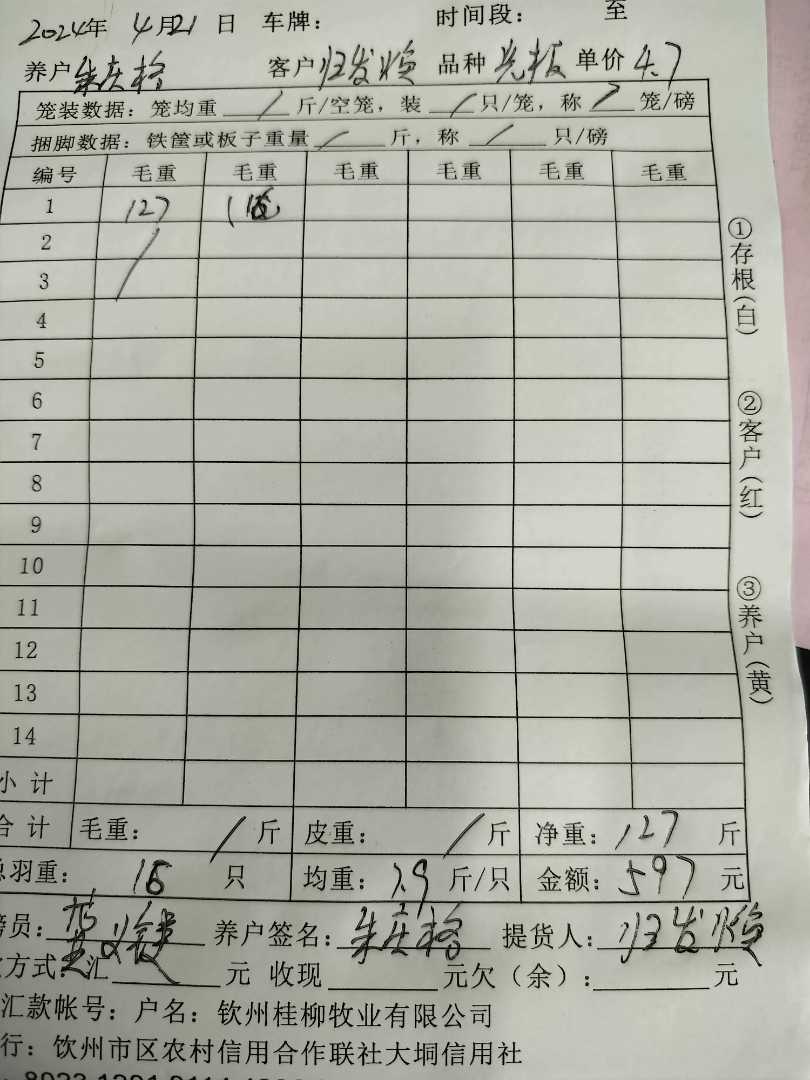 2024年 4月21日 车牌： 时间段： 至
养户 朱庆格 客户 归发焕 品种 光板 单价 4.7
笼装数据：笼均重 / 斤/空笼，装 / 只/笼，称 / 笼/磅
捆脚数据：铁筐或板子重量 / 斤，称 / 只/磅
编号 毛重 毛重 毛重 毛重 毛重 毛重
1 127
2 /
3
4
5
6
7
8
9
10
11
12
13
14
小计
合计 毛重： / 斤 皮重： / 斤 净重：127 斤
总羽重： 16 只 均重：7.9 斤/只 金额：597 元
员： 养户签名：朱庆格 提货人：归发焕
方式：汇 元 收现 元欠（余）： 元
汇款帐号：户名：钦州桂柳牧业有限公司
行：钦州市区农村信用合作联社大垌信用社
①存根（白）
②客户（红）
③养户（黄）